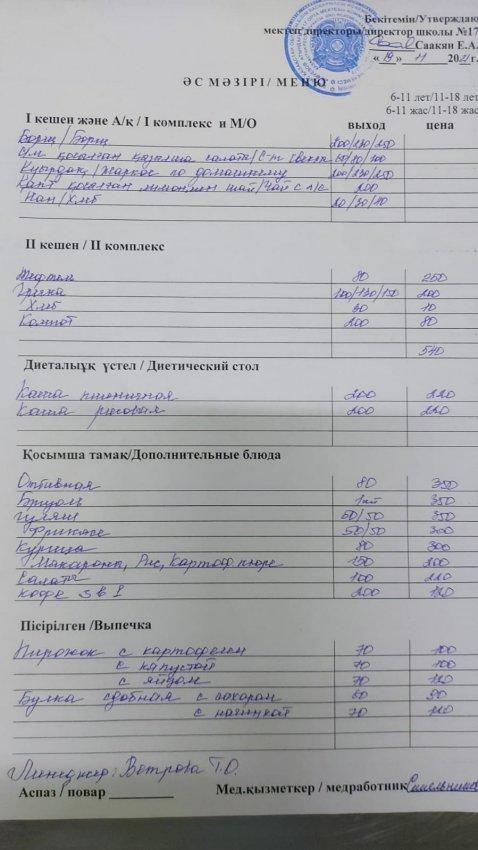 Бекітемін/Утверждаю
мектеп директоры/директор школы №17
Саакян Е.А.
«19» 11 2021 г.
АС МӘЗІРІ/ МЕНЮ
6-11 лет/11-18 лет
6-11 жас/11-18 жас
І кешен және А/қ / І комплекс и М/О выход цена
Борщ / Борщ 200/230/250
қосылған салата/С-т 60/80/100
Қуырдақ/Жаркое по домашнему 200/230/250
қосылған лимонмен шай/Чай с л/с 200
Нан/Хлеб 20/30/40
ІІ кешен / ІІ комплекс
Тефтели 80 250
Гречка 100/130/150 200
Хлеб 30 10
Компот 200 80
540
Диеталық үстел / Диетический стол
Каша пшеничная 200 220
Каша рисовая 200 220
Қосымша тамақ/Дополнительные блюда
Отбивная 80 350
Бризоль 1шт 350
Гуляш 50/50 350
Фрикасе 50/50 300
Курица 80 300
Макароны, Рис, Картоф пюре 150 200
Салаты 100
Кофе 3 в 1 200 120
Пісірілген /Выпечка
Пирожок с картофелем 70 100
с капустой 70 100
с яйцом 70 110
Булка сдобная с сахаром 60 90
с начинкой 70 110
Менеджер: Ветрова Т.О.
Аспаз / повар Мед.қызметкер / медработник